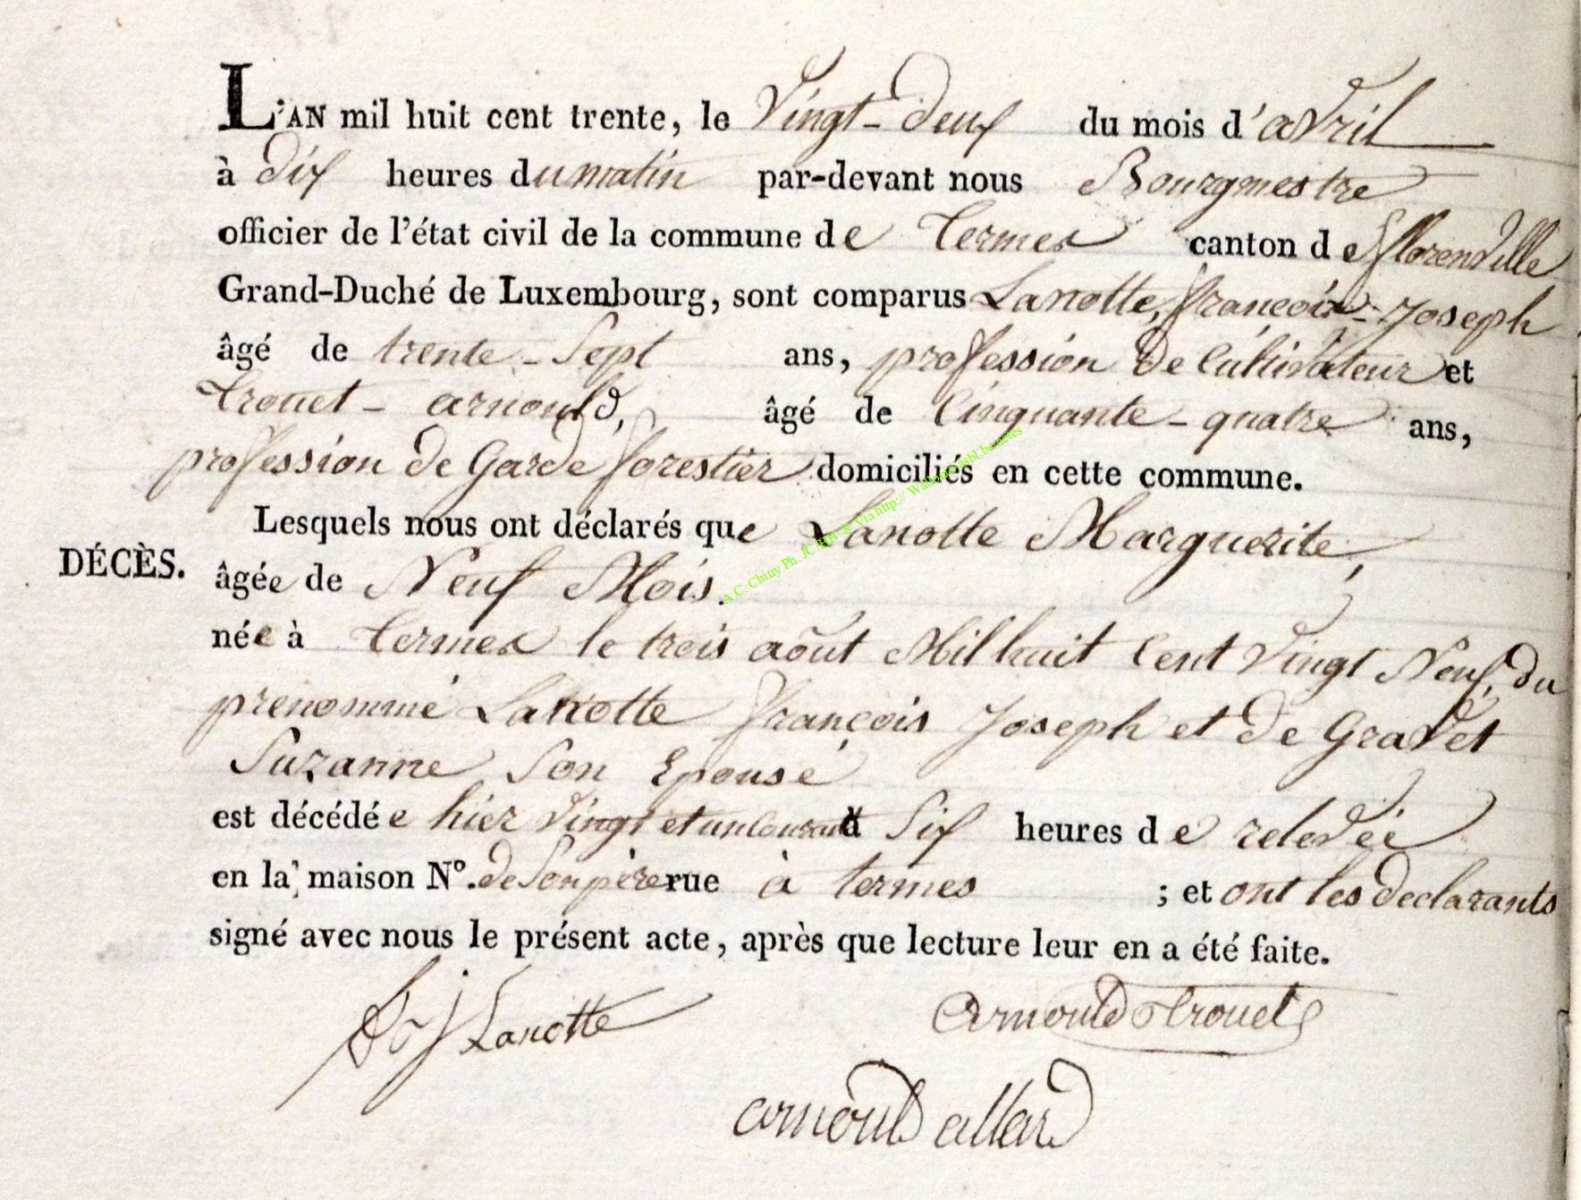 L'AN mil huit cent trente, le Vingt-deux du mois d'avril
à dix heures du matin par-devant nous Bourgmestre
officier de l'état civil de la commune de Termes canton de florenville
Grand-Duché de Luxembourg, sont comparus Lanotte, françois-Joseph
âgé de trente-Sept ans, profession de Cultivateur et
Trouet-arnould, âgé de Cinquante-quatre ans,
profession de Garde forestier domiciliés en cette commune.
Lesquels nous ont déclarés que Lanotte Marguerite,
DÉCÈS.
âgée de Neuf Mois.
née à Termes le trois août Mil huit Cent Vingt Neuf, du
prenommé Lanotte françois Joseph et de Gravet
Suzanne Son Epouse
est décédée hier Vingt et un courant à Six heures de relevée
en la maison N°. de Son père rue à termes ; et ont les declarants
signé avec nous le présent acte, après que lecture leur en a été faite.
f j Lanotte
Arnould Trouet
arnould allard
A.C. Chiny Ph. Via http://